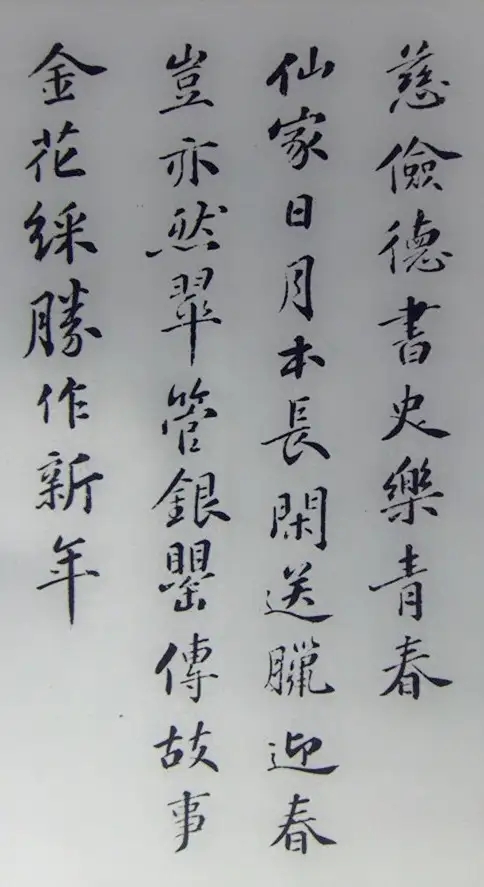 慈儉德書史樂青春
仙家日月本長閑送臘迎春
豈亦然翠管銀罌傳故事
金花綵勝作新年